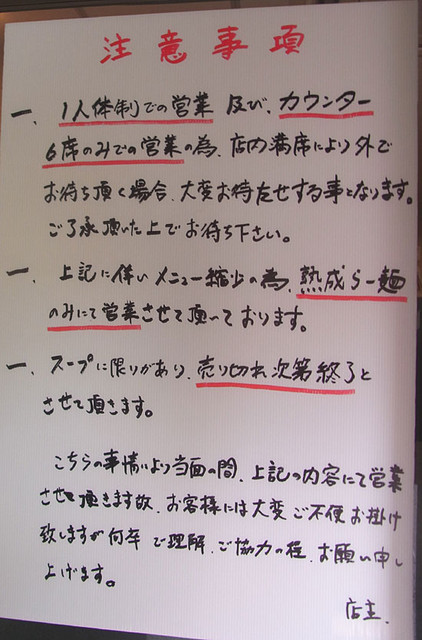 注意事項
一、1人体制での営業 及び、カウンター
6席のみでの営業の為、店内満席により外で
お待ち頂く場合、大変お待たせする事となります。
ご了承頂いた上でお待ち下さい。
一、上記に伴いメニュー縮少の為、熟成らー麺
のみにて営業させて頂いております。
一、スープに限りがあり、売り切れ次第終了と
させて頂きます。
こちらの事情により当面の間、上記の内容にて営業
させて頂きます故、お客様には大変ご不便お掛け
致しますが何卒ご理解、ご協力の程、お願い申し
上げます。
店主、